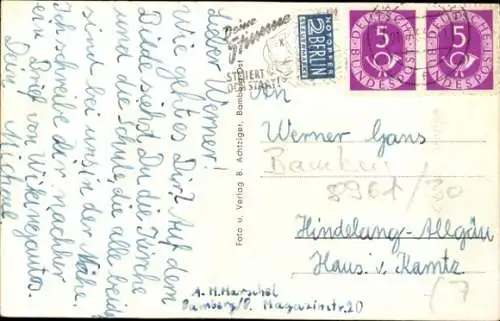 Lieber Werner!
Wie geht es Dir? Auf dem
Bilde siehst Du die Kirche
und die Schule, die alle beide
sind bei uns in der Nähe.
Ich schreibe Dir nachher
ein Brief von Wikingautos.
Dein
Deine
Stimme
STEUERT
DEN STAAT!
NOTOPFER
2 BERLIN
STEUERMARKE
DEUTSCHE
5
BUNDESPOST
DEUTSCHE
5
BUNDESPOST
An
Werner Gans
Bamberg
8961/30
Hindelang-Allgäu
Haus v. Kamtz
Foto u. Verlag B. Achtziger, Bamberg
A. M. Marschel
Bamberg/O. Magazinstr. 20